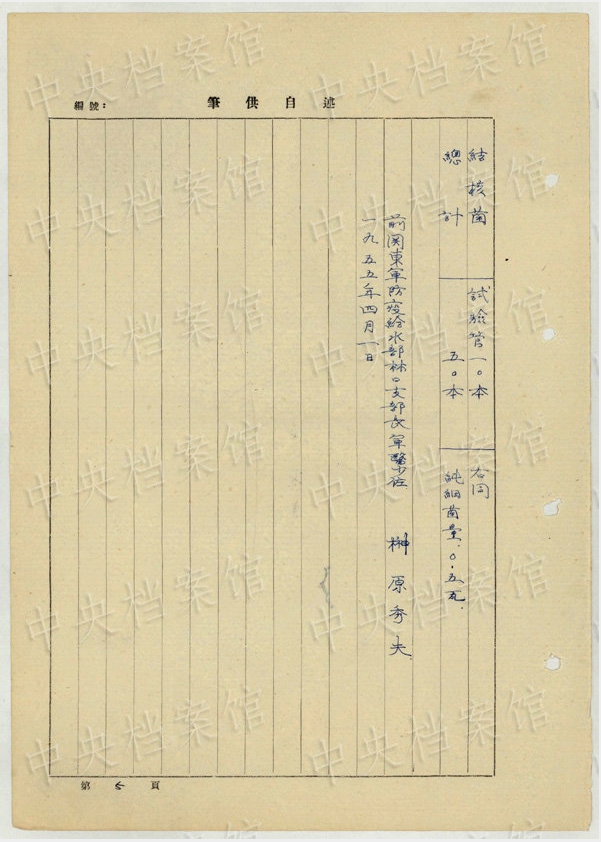 編號：
述自供筆
結核菌 試驗管一〇本 右同
總計 五〇本 純細菌量、〇・五瓦、
前関東軍防疫給水部林口支部長軍醫少佐 榊原秀夫
一九五五年四月一日
第 5 頁
中央档案馆